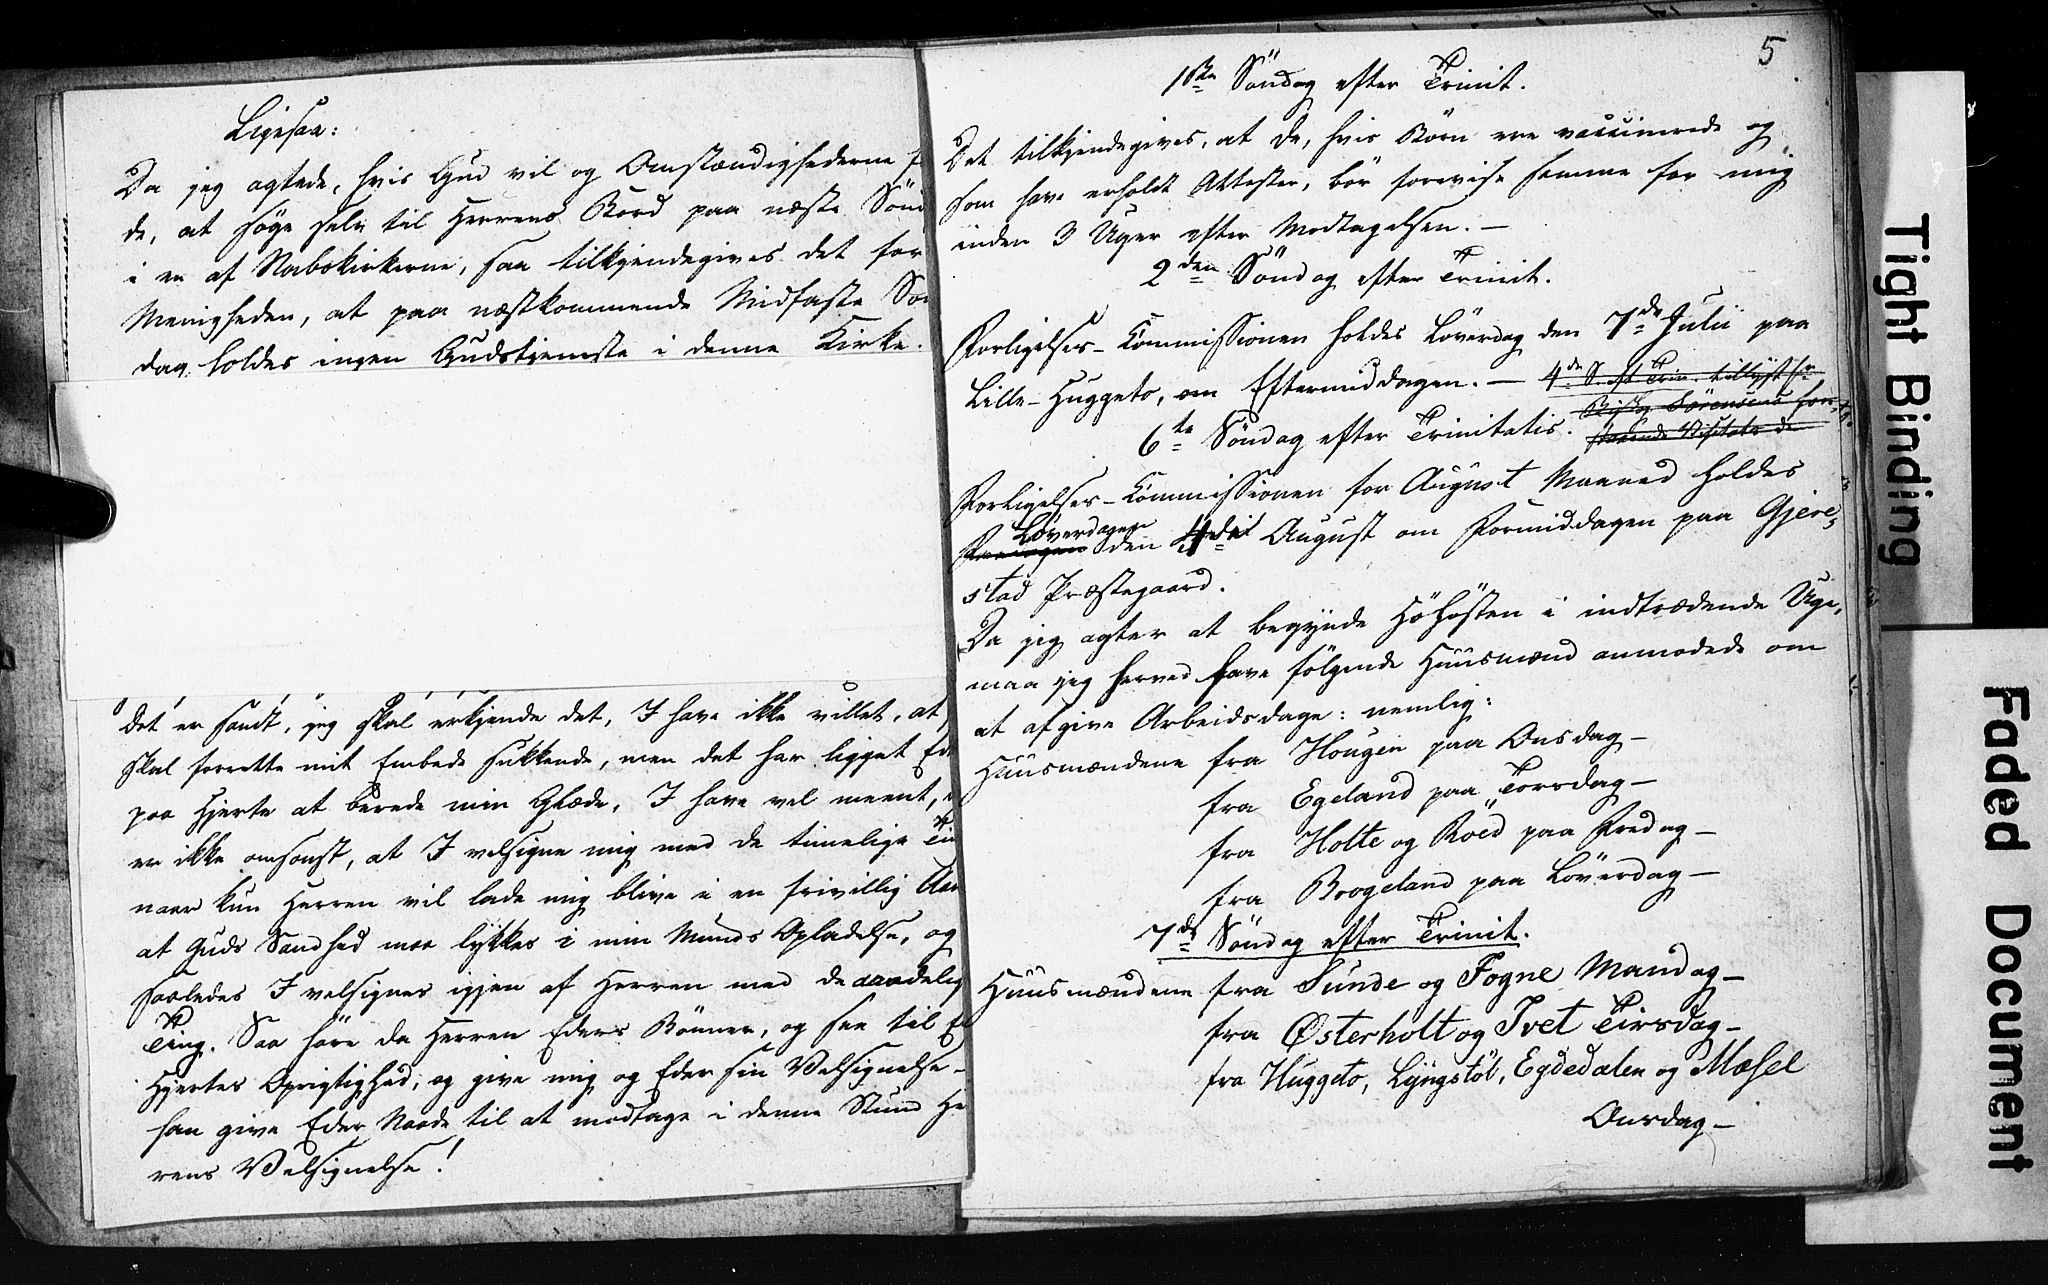 Ligesaa:
Da jeg agtede, hvis Gud vil og Omstændighederne
de, at søge selv til Herrens Bord paa næste Sönd
i en af Nabokirkerne, saa tilkjendegives det for
Menigheden, at paa næstkommende Midfaste Sön
dag holdes ingen Gudstjeneste i denne Kirke.
det er sandt, jeg skal erkjende det, I have ikke villet, at
skal forrette mit Embede sukkende, men det har ligget Ed
paa Hjerte at berede min Glæde, I have vel meent,
er ikke omsonst, at I velsigne mig med de timelige Tin
naar kun Herren vil lade mig blive i en frivillig Aan
at Guds Sandhed maa lykkes i min Munds Opladelse, og
saaledes I velsignes igjen af Herren med de aandelig
Ting. Saa höre da Herren Eders Bönner, og see til Ed
Hjertes Oprigtighed, og give mig og Eder sin Velsignelse -
han give Eder Naade til at modtage i denne Stund He
rens Velsignelse!
5
1ste Söndag efter Trinit.
Det tilkjendegives, at de, hvis Börn ere vaccinerede og
som have erholdt Attester, bör forevise samme for mig
inden 3 Uger efter Modtagelsen. -
2den Söndag efter Trinit.
Forligelses-Commissionen holdes Löverdag den 7de Julii paa
Lille-Huggeto, om Eftermiddagen. - 4de S. eft. Trin. tillyst
6te Söndag efter Trinitatis. Biskop Sörensens fore-
staaende Visitats
Forligelses-Commissionen for August Maaned holdes
Löverdagen
den 4de August om Formiddagen paa Gjere-
stad Præstegaard.
Da jeg agter at begynde Höhösten i indtrædende Uge,
maa jeg herved have fölgende Huusmænd anmodede om
at afgive Arbeidsdage: nemlig:
Huusmændene fra Hougen paa Onsdag -
fra Egeland paa Torsdag -
fra Holte og Roed paa Fredag -
fra Brogeland paa Löverdag -
7de Söndag efter Trinit.
Huusmændene fra Sunde og Fogne Mandag -
fra Østerholt og Tvet Tirsdag -
fra Huggeto, Lyngstöl, Egdedalen og Mæsel
Onsdag -
Tight Binding
Faded Document